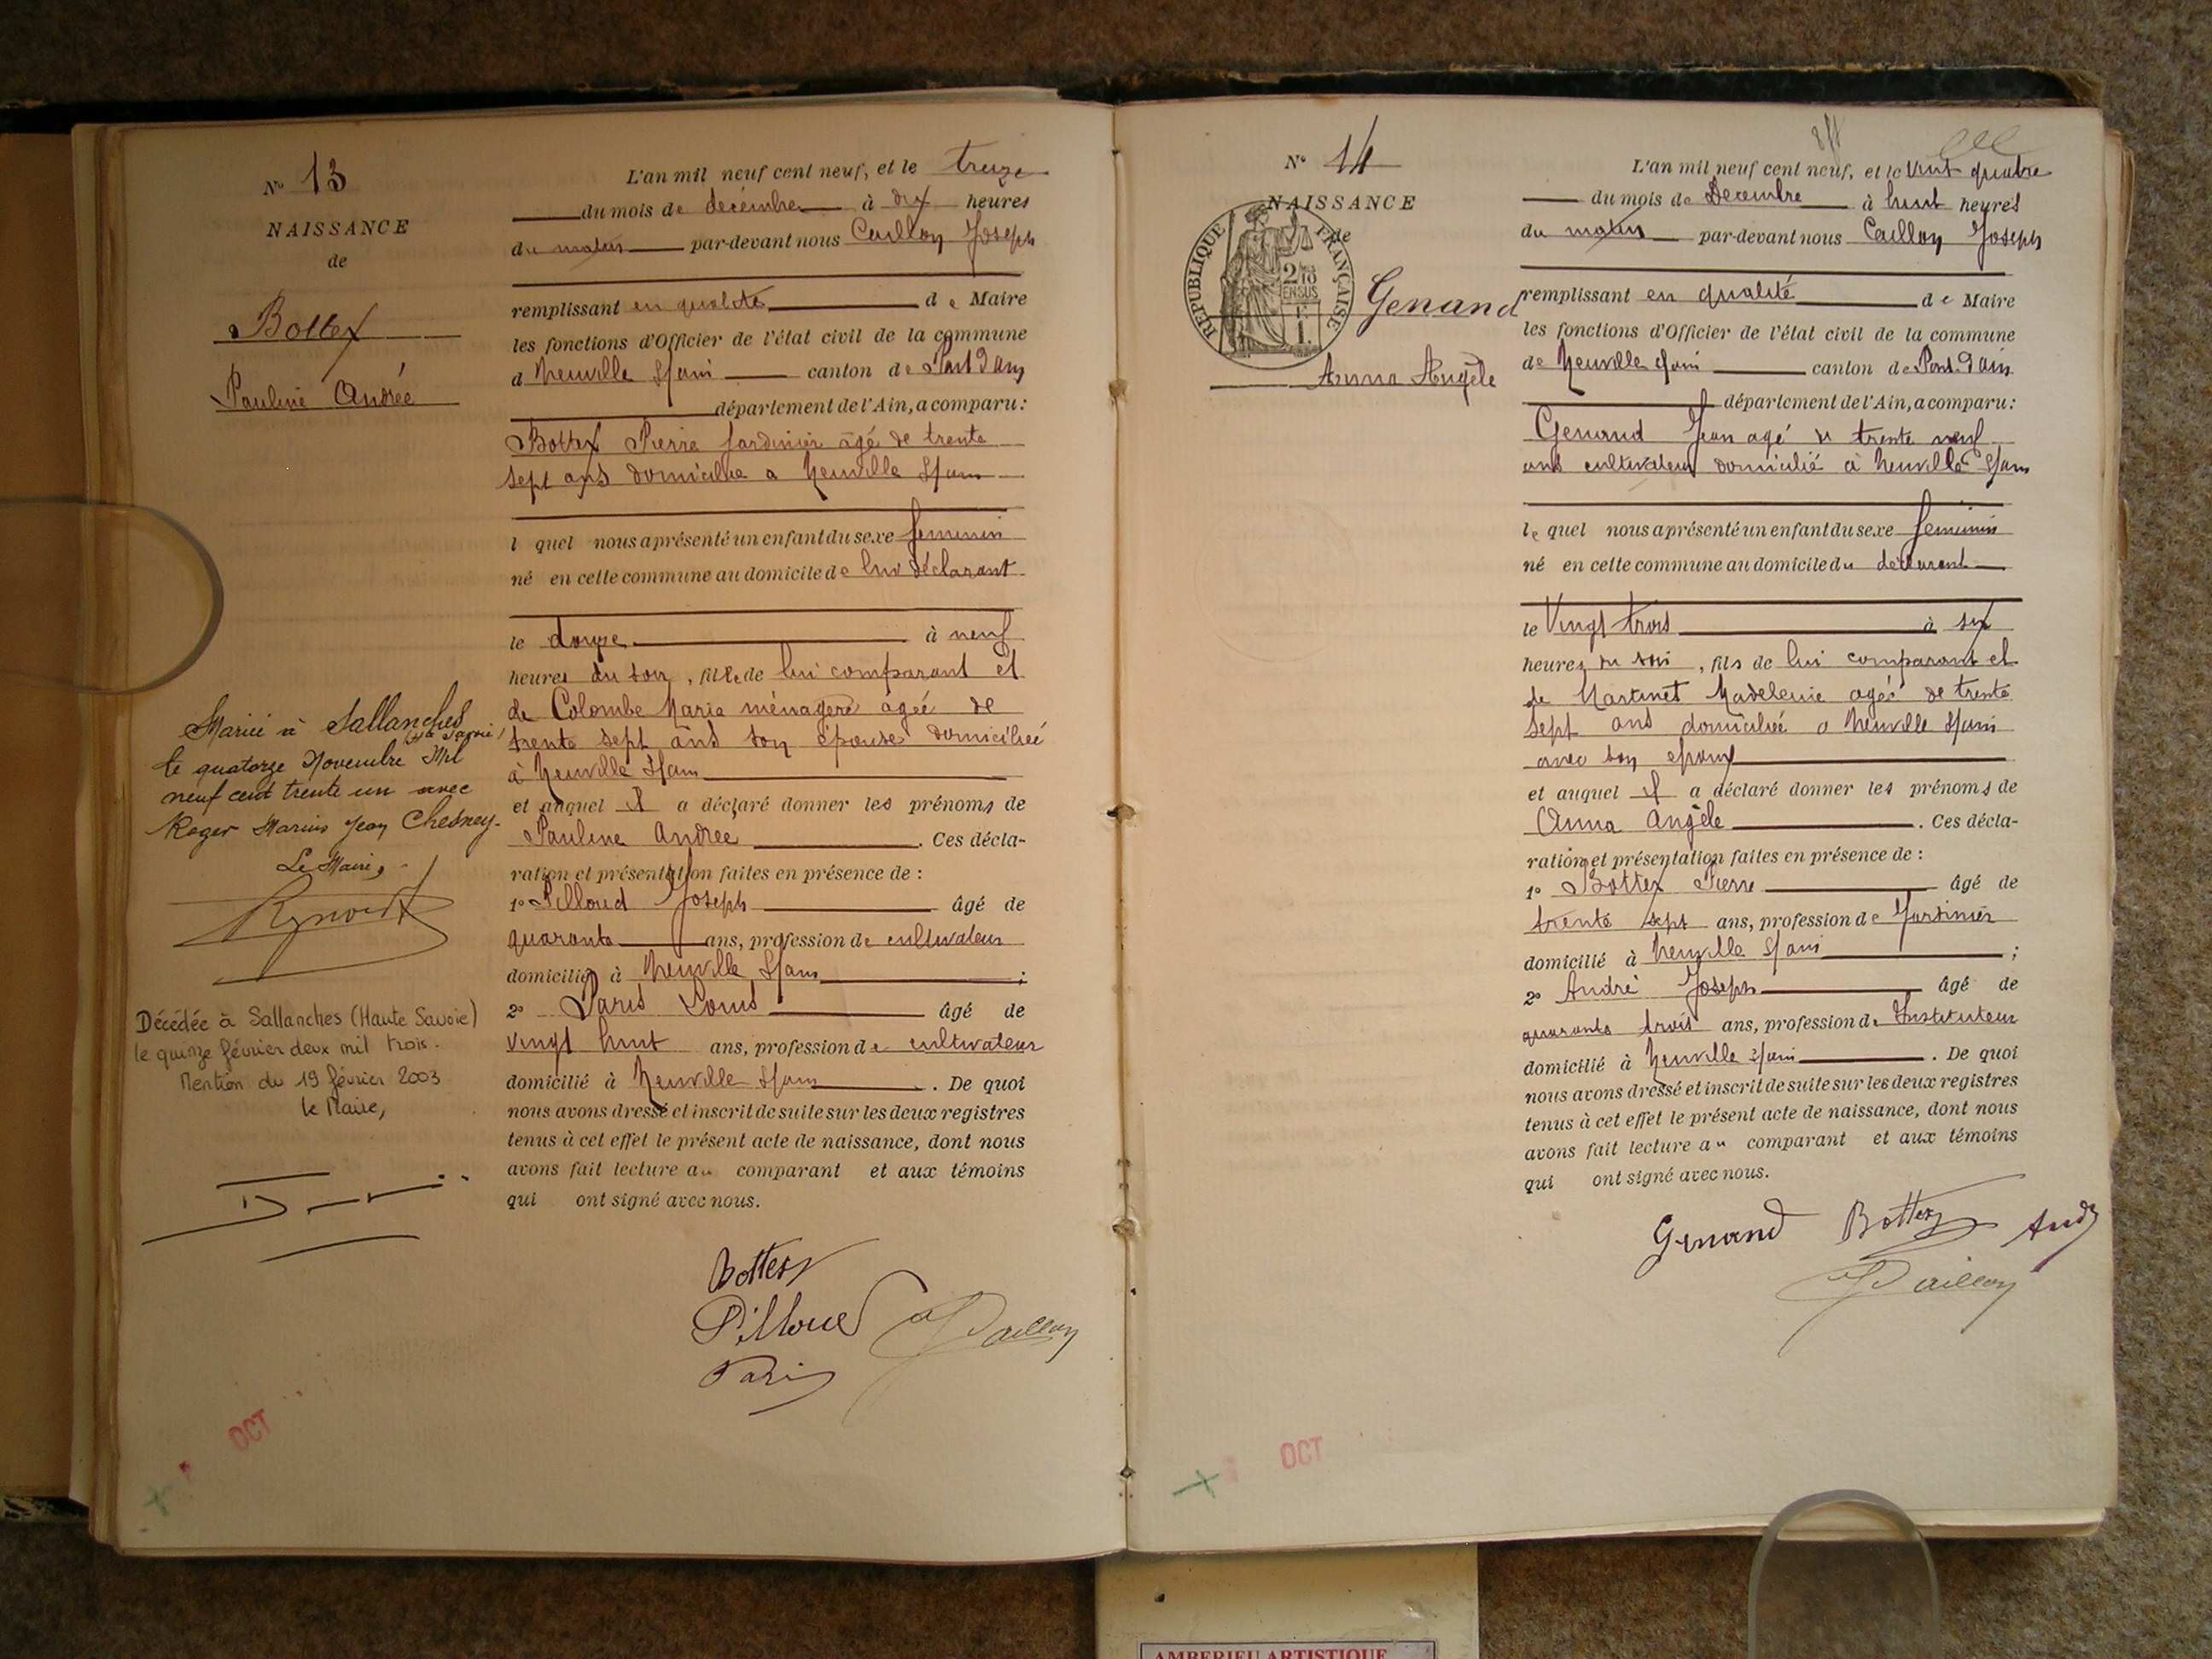 N° 13
NAISSANCE
de
Bottex
Pauline Andrée
L'an mil neuf cent neuf, et le treize
du mois de décembre à dix heures
du matin par-devant nous Caillon Joseph
remplissant en qualité de Maire
les fonctions d'Officier de l'état civil de la commune
d Neuville s/ain canton de Pont d'ain
département de l'Ain, a comparu:
Bottex Pierre Jardinier âgé de trente
sept ans domicilié a Neuville s/ain
l quel nous a présenté un enfant du sexe féminin
né en cette commune au domicile de lui déclarant
le douze à neuf
heures du soir, fille de lui comparant et
de Colombe Maria ménagère agée de
trente sept ans son épouse domiciliée
à Neuville s/ain
et auquel il a déclaré donner les prénoms de
Pauline Andrée. Ces décla-
ration et présentation faites en présence de :
1° Pilloud Joseph âgé de
quarante ans, profession de cultivateur
domicilié à Neuville s/ain ;
2° Paris Louis âgé de
vingt huit ans, profession de cultivateur
domicilié à Neuville s/ain. De quoi
nous avons dressé et inscrit de suite sur les deux registres
tenus à cet effet le présent acte de naissance, dont nous
avons fait lecture au comparant et aux témoins
qui ont signé avec nous.
Bottex
Pilloud Caillon
Paris
Mariée à Sallanches
(Hte Savoie)
le quatorze Novembre Mil
neuf cent trente un avec
Roger Marius Jean Chesney.
Le Maire,
Décédée à Sallanches (Haute Savoie)
le quinze février deux mil trois.
Mention du 19 février 2003
le Maire,
OCT
N° 14
NAISSANCE
de
RÉPUBLIQUE FRANÇAISE
Genand
Anna Angèle
L'an mil neuf cent neuf, et le vint quatre
du mois de Décembre à huit heures
du matin par-devant nous Caillon Joseph
remplissant en qualité de Maire
les fonctions d'Officier de l'état civil de la commune
de Neuville s/ain canton de Pont d'ain
département de l'Ain, a comparu:
Genand Jean agé de trente neuf
ans cultivateur domicilié à Neuville s/ain
le quel nous a présenté un enfant du sexe féminin
né en cette commune au domicile du déclarant
le Vingt trois à six
heures du soir, fils de lui comparant et
de Martinet Madeleine agée de trente
sept ans domiciliée a Neuville s/ain
avec son epoux
et auquel il a déclaré donner les prénoms de
Anna Angèle. Ces décla-
ration et présentation faites en présence de :
1° Bottex Pierre âgé de
trente sept ans, profession de Jardinier
domicilié à Neuville s/ain ;
2° André Joseph âgé de
quarante trois ans, profession d. Instituteur
domicilié à Neuville s/ain. De quoi
nous avons dressé et inscrit de suite sur les deux registres
tenus à cet effet le présent acte de naissance, dont nous
avons fait lecture au comparant et aux témoins
qui ont signé avec nous.
Genand Bottex
Caillon
OCT
AMBERIEU ARTISTIQUE